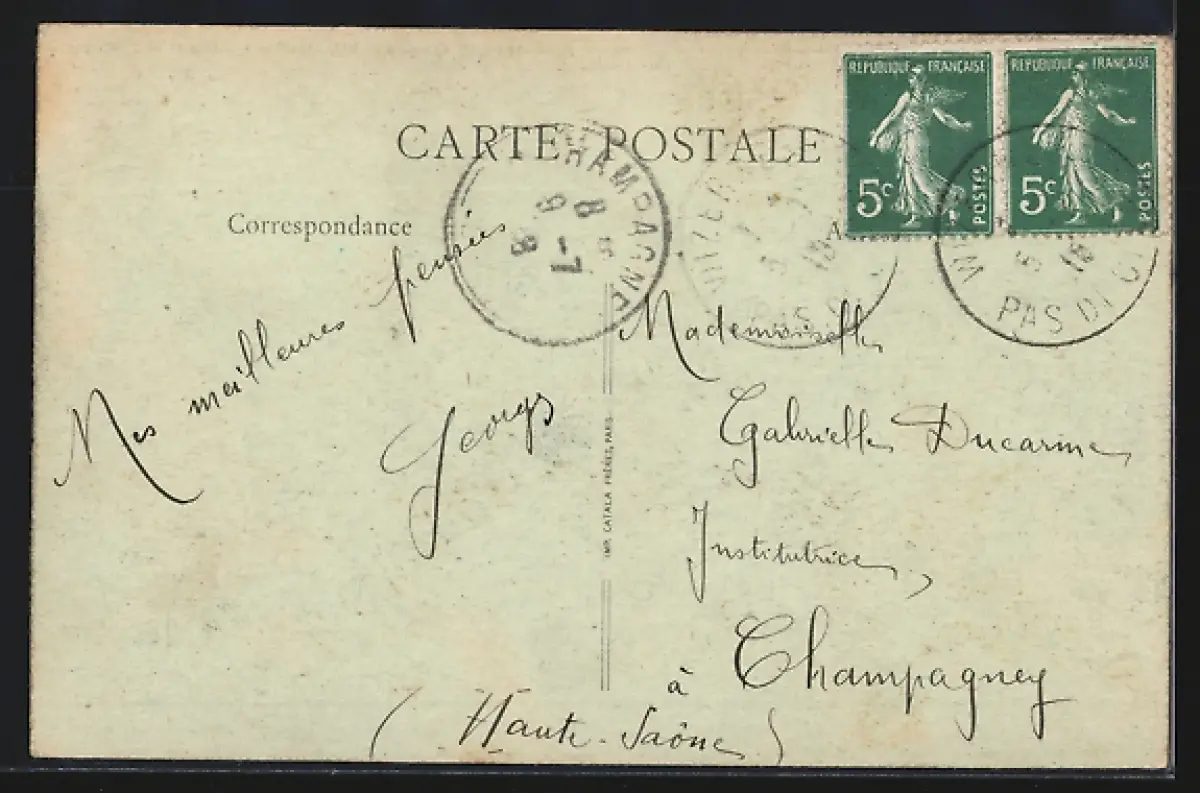 CARTE POSTALE
RÉPUBLIQUE FRANÇAISE
5c
POSTES
RÉPUBLIQUE FRANÇAISE
5c
POSTES
Correspondance
Mes meilleures pensées
Georges
IMP. CATALA FRÈRES, PARIS
Mademoiselle
Gabrielle Ducarme
Institutrice,
à Champagney
(Haute-Saône)
PAS D